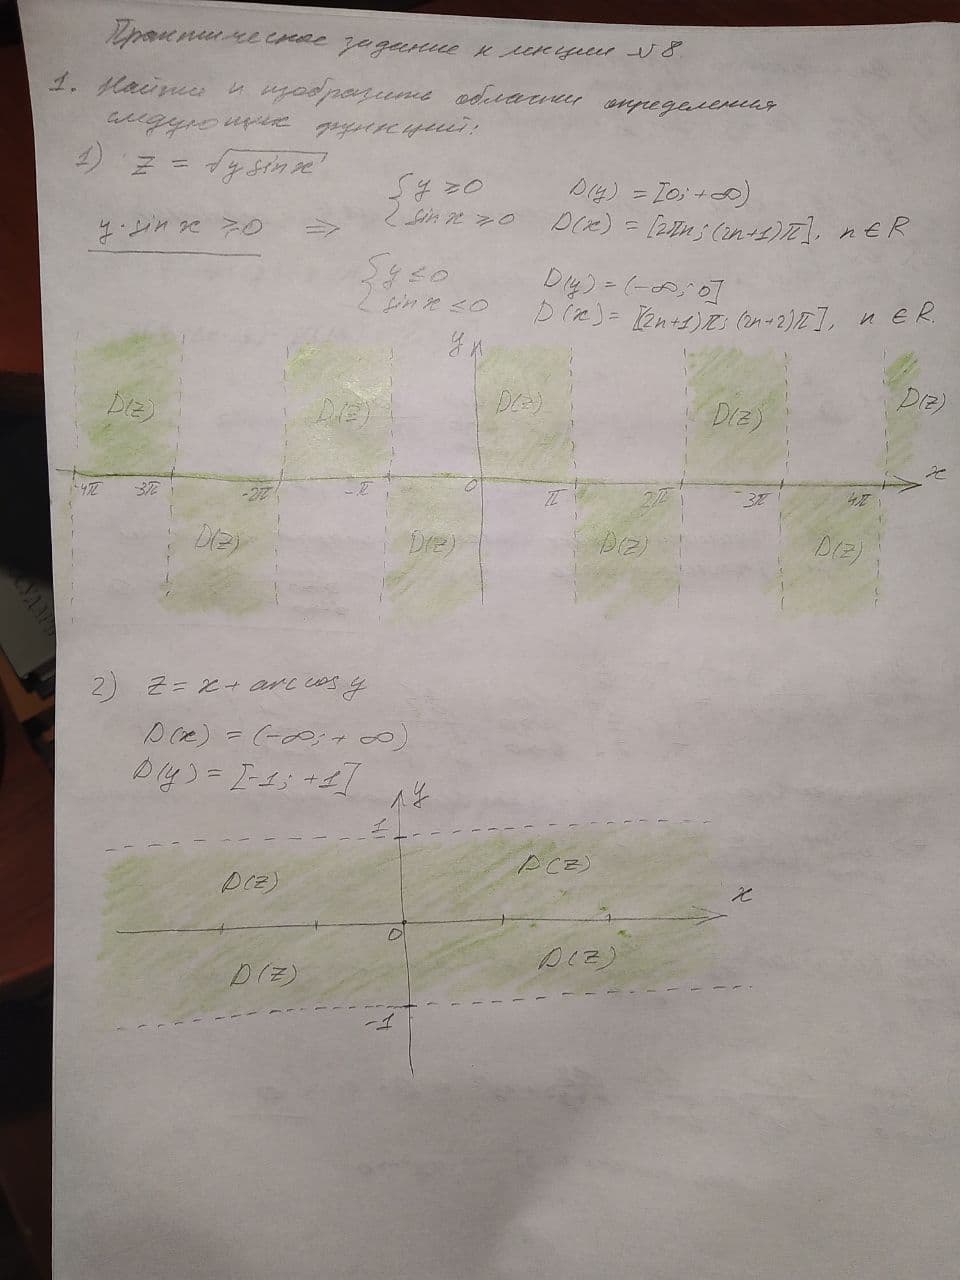 Практическое задание к лекции №8
1. Найти и изобразить области определения
следующих функций:
1) z = √(y sin x)
y·sin x ≥ 0 ⇒ { y ≥ 0 D(y) = [0; +∞)
sin x ≥ 0 D(x) = [2πn; (2n+1)π], n ∈ R
{ y ≤ 0 D(y) = (-∞; 0]
sin x ≤ 0 D(x) = [(2n+1)π; (2n+2)π], n ∈ R.
y
D(z) D(z) D(z) D(z) D(z)
x
-4π -3π -2π -π 0 π 2π 3π 4π
D(z) D(z) D(z) D(z)
2) z = x + arccos y
D(x) = (-∞; +∞)
D(y) = [-1; +1]
y
1
D(z) D(z)
x
0
D(z) D(z)
-1